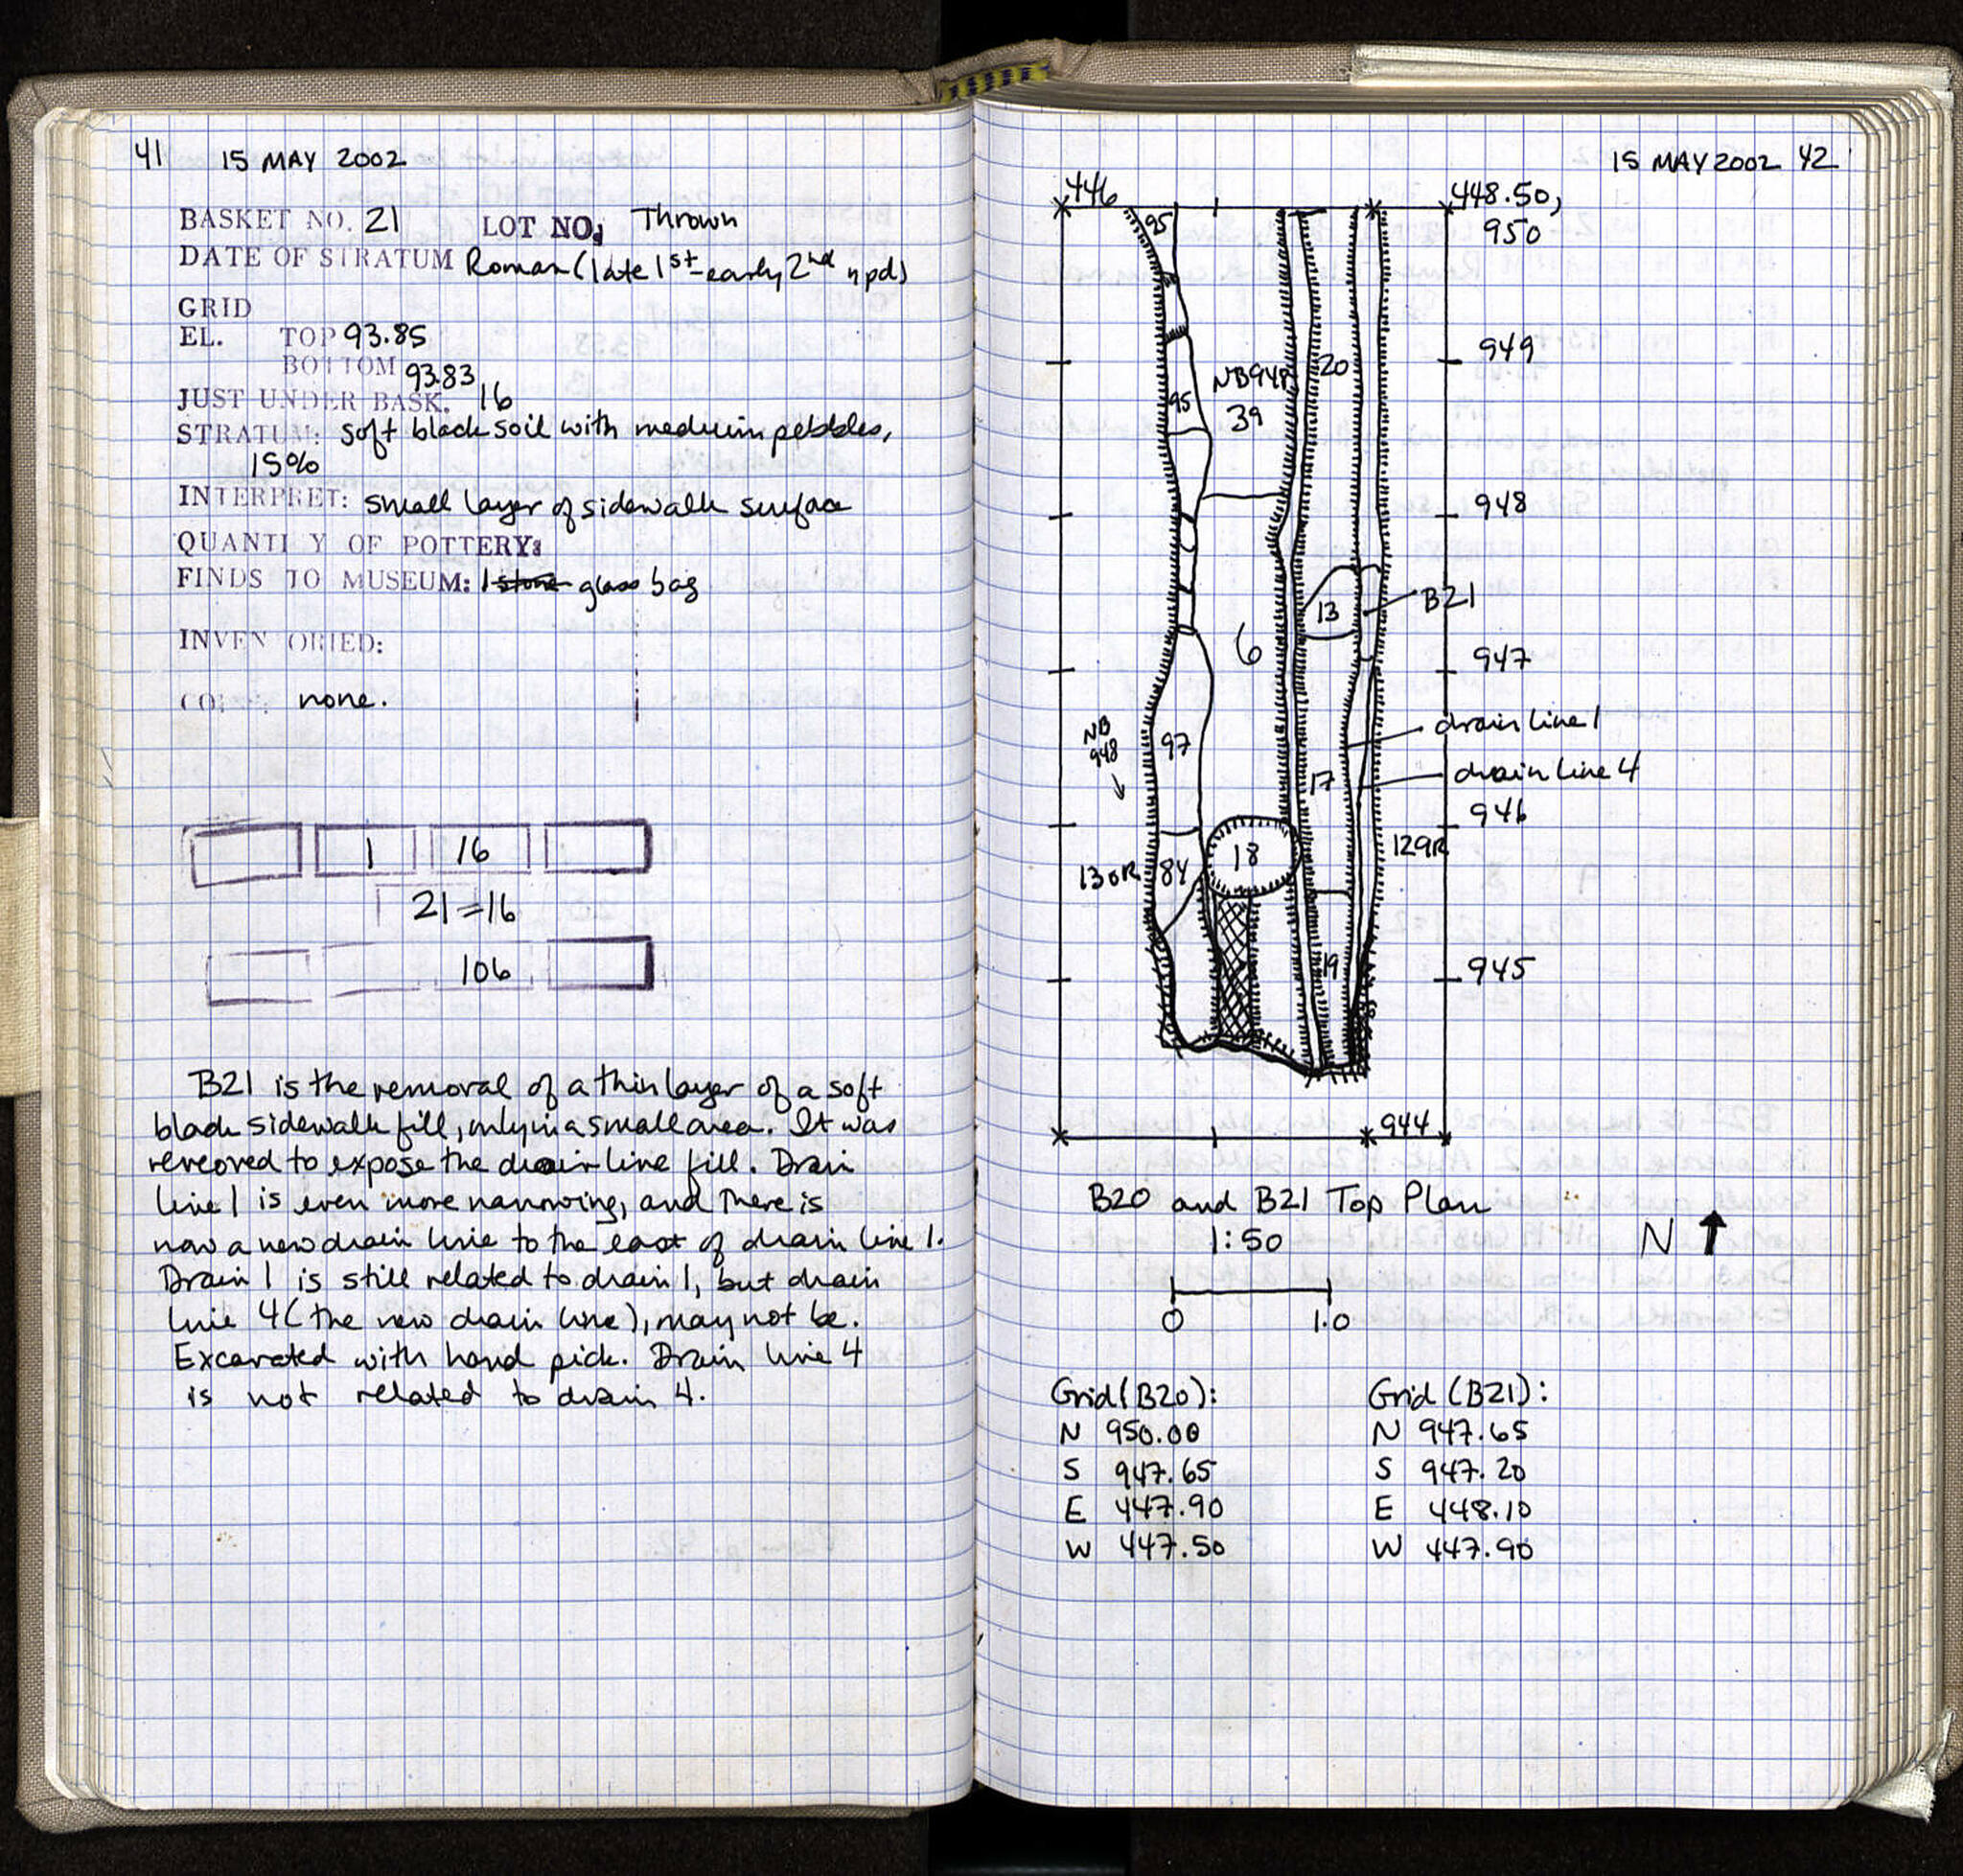 41 15 MAY 2002
BASKET NO. 21 LOT NO: Thrown
DATE OF STRATUM Roman (late 1st-early 2nd npd)
GRID
EL. TOP 93.85
BOTTOM 93.83
JUST UNDER BASK. 16
STRATUM: soft black soil with medium pebbles,
15%
INTERPRET: small layer of sidewalk surface
QUANTI Y OF POTTERY:
FINDS TO MUSEUM: 1 stone glass bag
INVEN ORIED:
none.
1 16
21=16
106
B21 is the removal of a thin layer of a soft
black sidewalk fill, only in a small area. It was
removed to expose the drain line fill. Drain
line 1 is even more narrowing, and there is
now a new drain line to the east of drain line 1.
Drain 1 is still related to drain 1, but drain
line 4 (the new drain line), may not be.
Excavated with hand pick. Drain line 4
is not related to drain 4.
15 MAY 2002 42
446
448.50,
950
95
949
20
NB948
39
95
948
13
B21
6
947
drain line 1
NB
948
97
drain line 4
17
946
129R
18
130R
84
19
945
944
B20 and B21 Top Plan
1:50
N
0 1.0
Grid (B20): Grid (B21):
N 950.00 N 947.65
S 947.65 S 947.20
E 447.90 E 448.10
W 447.50 W 447.90